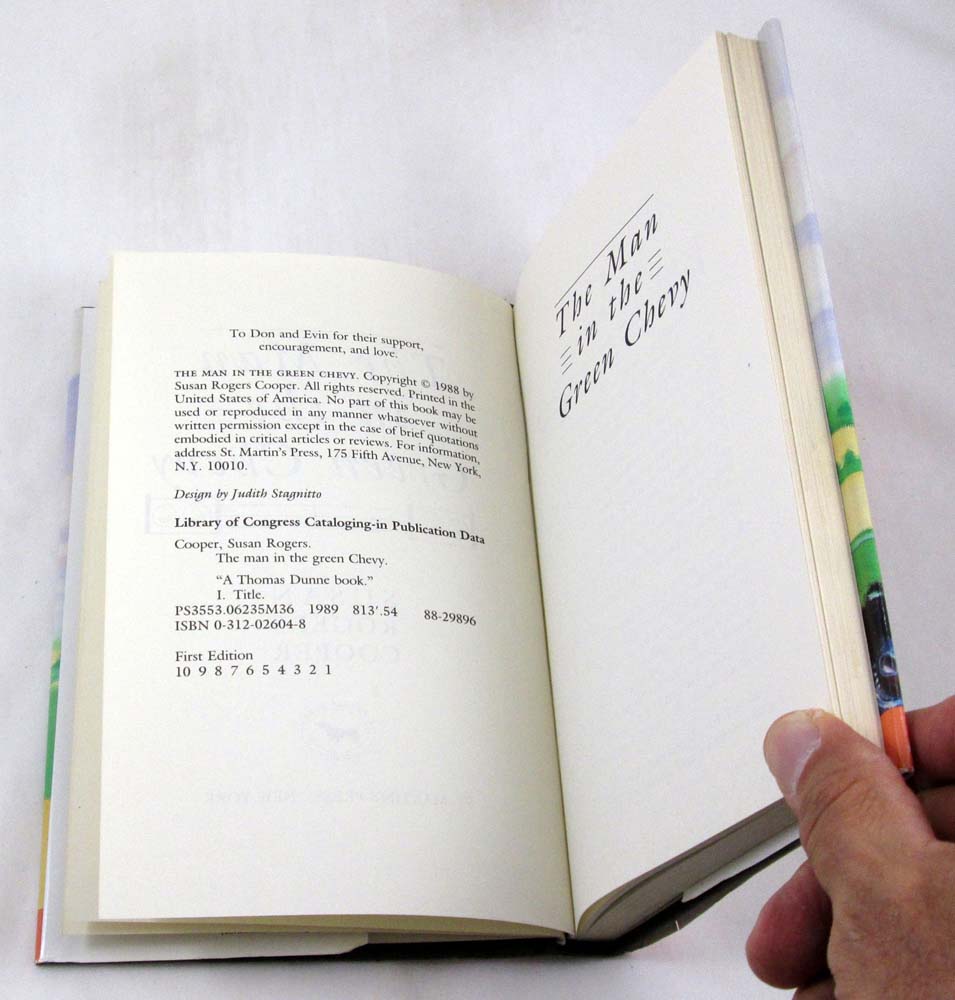 To Don and Evin for their support,
encouragement, and love.
THE MAN IN THE GREEN CHEVY. Copyright © 1988 by
Susan Rogers Cooper. All rights reserved. Printed in the
United States of America. No part of this book may be
used or reproduced in any manner whatsoever without
written permission except in the case of brief quotations
embodied in critical articles or reviews. For information,
address St. Martin's Press, 175 Fifth Avenue, New York,
N.Y. 10010.
Design by Judith Stagnitto
Library of Congress Cataloging-in Publication Data
Cooper, Susan Rogers.
The man in the green Chevy.
"A Thomas Dunne book."
I. Title.
PS3553.06235M36 1989 813'.54 88-29896
ISBN 0-312-02604-8
First Edition
10 9 8 7 6 5 4 3 2 1
The Man
in the
Green Chevy